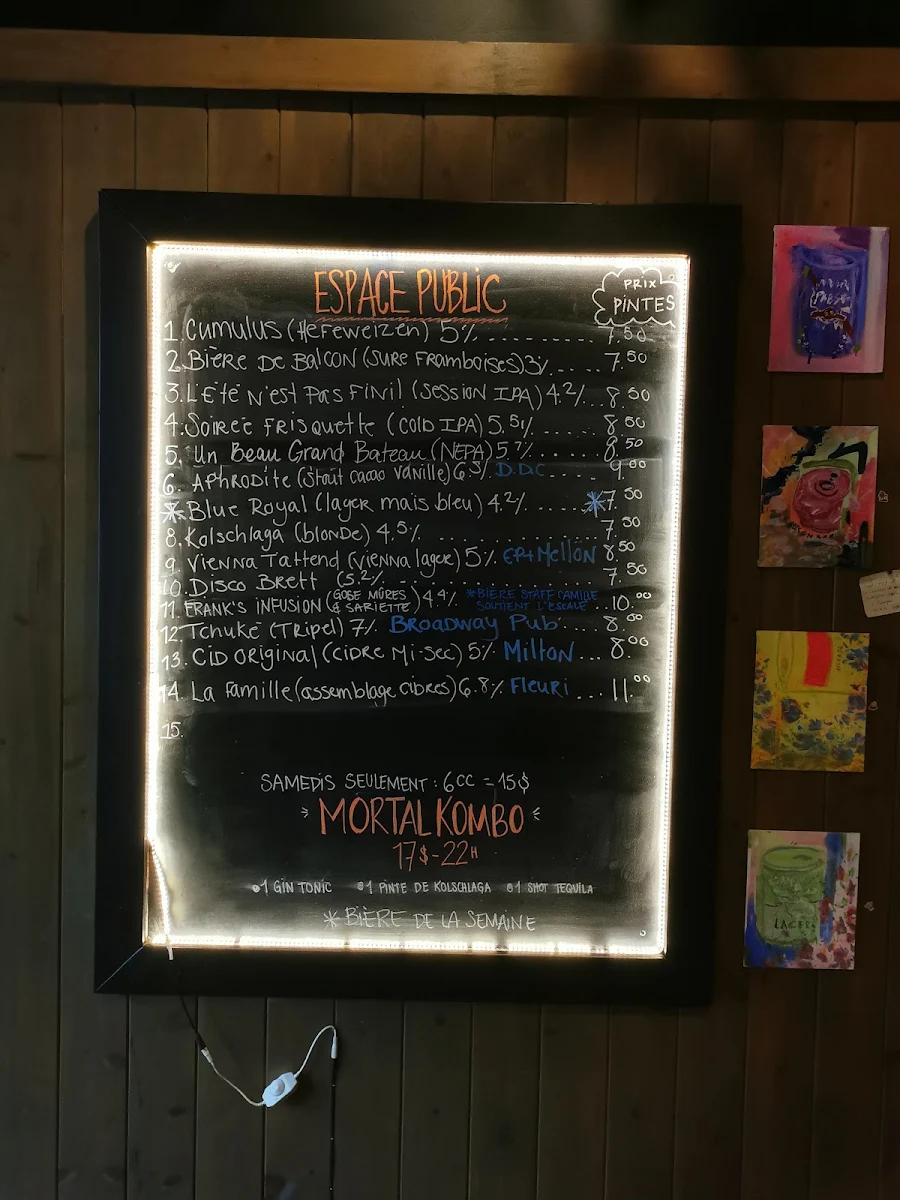 ESPACE PUBLIC
PRIX
PINTES
1. Cumulus (Hefeweizen) 5% ......... 7.50
2. Bière de Balcon (Sure Framboises) 3% ..... 7.50
3. L'Été n'est pas finil (Session IPA) 4.2% ... 8.50
4. Soirée Frisquette (Cold IPA) 5.5% ....... 8.50
5. Un Beau Grand Bateau (NEPA) 5.7% ...... 8.50
6. Aphrodite (Stout cacao vanille) 6.5% D.D.C .... 9.00
* Blue Royal (lager maïs bleu) 4.2% ...... *7.50
8. Kolschlaga (blonde) 4.5% ............ 7.50
9. Vienna Tattend (vienna lager) 5% EP+Mellon 8.50
10. Disco Brett (5.2% ............ 7.50
11. FRANK'S INFUSION (GOSE MÛRES & SARIETTE) 4.4% *BIÈRE STAFF CAMILLE SOUTIENT L'ESCALE ..10.00
12. Tchuké (Tripel) 7% Broadway Pub ..... 8.00
13. Cid Original (cidre mi-sec) 5% Milton ... 8.00
14. La Famille (assemblage cibres) 6.8% Fleuri ... 11.00
15.
SAMEDIS SEULEMENT : 6CC = 15$
MORTAL KOMBO
17$ - 22H
1 GIN TONIC 1 PINTE DE KOLSCHLAGA 1 SHOT TEQUILA
* BIÈRE DE LA SEMAINE
LAGER